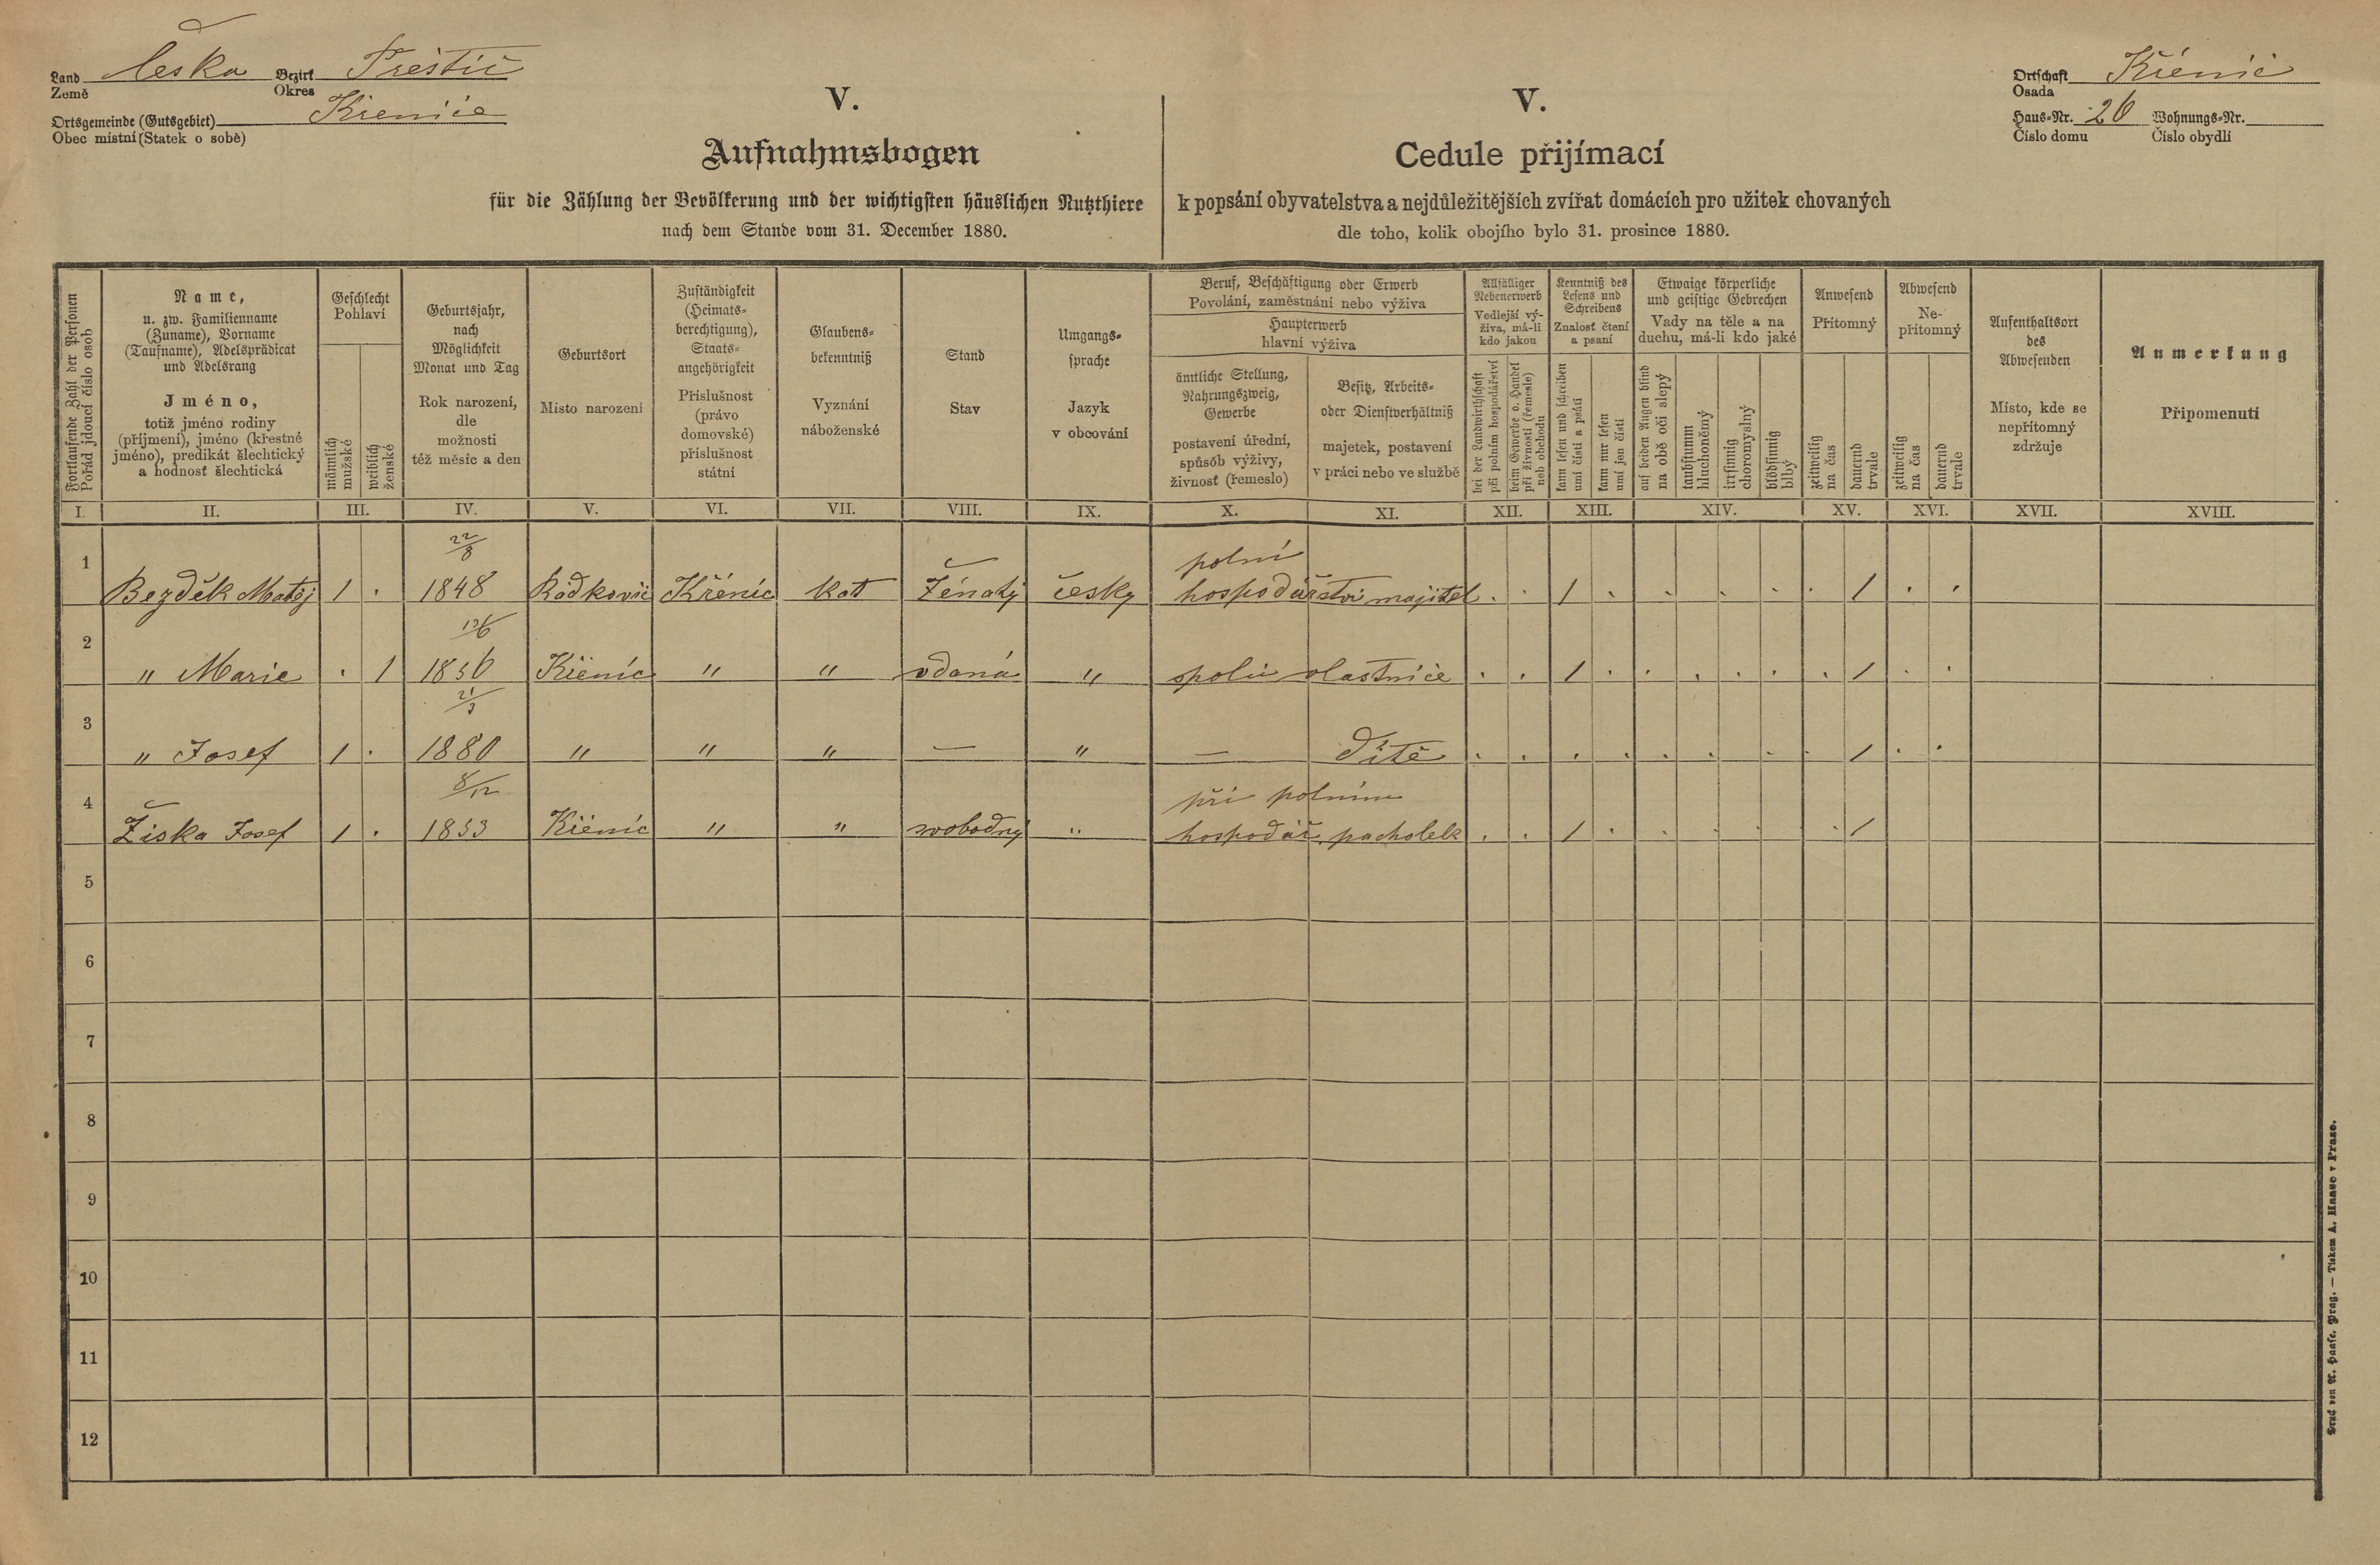 Land Česka Bezirk Přestic
Země Okres
Ortsgemeinde (Gutsgebiet) Křenice
Obec místní (Statek o sobě)
V.
Aufnahmsbogen
für die Zählung der Bevölkerung und der wichtigsten häuslichen Nutzthiere
nach dem Stande vom 31. December 1880.
V.
Cedule přijímací
k popsání obyvatelstva a nejdůležitějších zvířat domácích pro užitek chovaných
dle toho, kolik obojího bylo 31. prosince 1880.
Ortschaft Křénic
Osada
Haus-Nr. 26 Wohnungs-Nr.
Číslo domu Číslo obydlí
Fortlaufende Zahl der Personen
Pořád jdoucí číslo osob
Name,
u. zw. Familienname
(Zuname), Vorname
(Taufname), Adelsprädicat
und Adelsrang
Jméno,
totiž jméno rodiny
(příjmení), jméno (křestné
jméno), predikát šlechtický
a hodnosť šlechtická
Geschlecht
Pohlaví
männlich
mužské
weiblich
ženské
Geburtsjahr,
nach
Möglichkeit
Monat und Tag
Rok narození,
dle
možnosti
též měsíc a den
Geburtsort
Místo narození
Zuständigkeit
(Heimats-
berechtigung),
Staats-
angehörigkeit
Příslušnost
(právo
domovské)
příslušnost
státní
Glaubens-
bekenntniß
Vyznání
náboženské
Stand
Stav
Umgangs-
sprache
Jazyk
v obcování
Beruf, Beschäftigung oder Erwerb
Povolání, zaměstnání nebo výživa
Haupterwerb
hlavní výživa
ämtliche Stellung,
Nahrungszweig,
Gewerbe
postavení úřední,
spůsob výživy,
živnosť (řemeslo)
Besitz, Arbeits-
oder Dienstverhältniß
majetek, postavení
v práci nebo ve službě
Allfälliger
Nebenerwerb
Vedlejší vý-
živa, má-li
kdo jakou
bei der Landwirthschaft
při polním hospodářství
beim Gewerbe o. Handel
při živnosti (řemesle)
neb obchodu
Kenntniß des
Lesens und
Schreibens
Znalosť čtení
a psaní
kann lesen und schreiben
umí čísti a psáti
kann nur lesen
umí jen čísti
Etwaige körperliche
und geistige Gebrechen
Vady na těle a na
duchu, má-li kdo jaké
auf beiden Augen blind
na obě oči slepý
taubstumm
hluchoněmý
irrsinnig
choromyslný
blödsinnig
blbý
Anwesend
Přítomný
zeitweilig
na čas
dauernd
trvale
Abwesend
Ne-
přítomný
zeitweilig
na čas
dauernd
trvale
Aufenthaltsort
des
Abwesenden
Místo, kde se
nepřítomný
zdržuje
Anmerkung
Připomenutí
I. II. III. IV. V. VI. VII. VIII. IX. X. XI. XII. XIII. XIV. XV. XVI. XVII. XVIII.
22/8 polní
1 Bezděk Matěj 1 . 1848 Radkovic Křénic kat Ženatý česky hospodářství majitel . . 1 . . . . . 1 . .
2 " Marie . 1 1856 Křénic " " vdaná " spolu vlastnice . . 1 . . . . . . 1 . .
21/3
3 " Josef 1 . 1880 " " " — " — dítě . . . . . . . . 1 . .
8/12 při polním
4 Žiska Josef 1 . 1853 Křénic " " svobodný " hospodář. pacholek . . 1 . . . . . . 1
5
6
7
8
9
10
11
12
Druck von A. Haase, Prag. — Tiskem A. Haase v Praze.